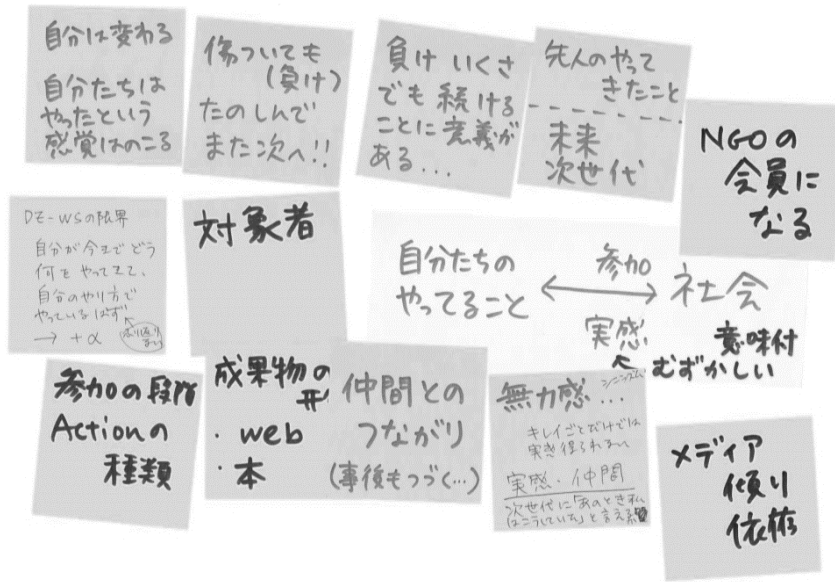 自分は変わる
自分たちは
やったという
感覚はのこる
傷ついても
(負け)
たのしんで
また次へ!!
負け いくさ
でも 続ける
ことに意義が
ある...
先人のやって
きたこと
未来
次世代
NGOの
会員に
なる
DE-WSの限界
自分が今まで どう
何を やってきて、
自分のやり方で
やっているはず
→ +α
対象者
自分たちの
やってること
参加
実感
社会
意味付
むずかしい
参加の段階
Actionの
種類
成果物の
形
・web
・本
仲間との
つながり
(事後もつづく…)
無力感...
シニシズム
キレイごとだけでは
実感 得られない
実感・仲間
次世代に「あのとき私
はこうしていた」と言える
メディア
偏り
依存